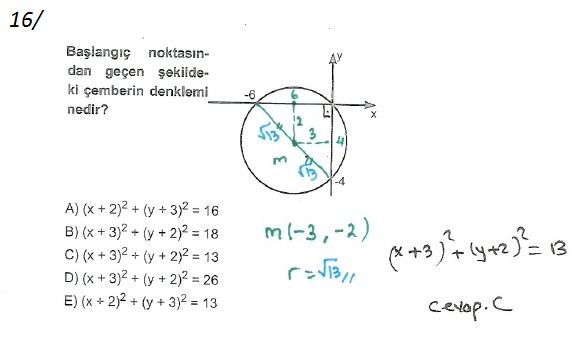 16/
Başlangıç noktasın-
dan geçen şekilde-
ki çemberin denklemi
nedir?
y
-6
6
x
2
3
4
√13
m
√13
-4
A) (x + 2)² + (y + 3)² = 16
B) (x + 3)² + (y + 2)² = 18
C) (x + 3)² + (y + 2)² = 13
D) (x + 3)² + (y + 2)² = 26
E) (x + 2)² + (y + 3)² = 13
m(-3, -2)
r = √13 //
(x+3)² + (y+2)² = 13
cevap. C